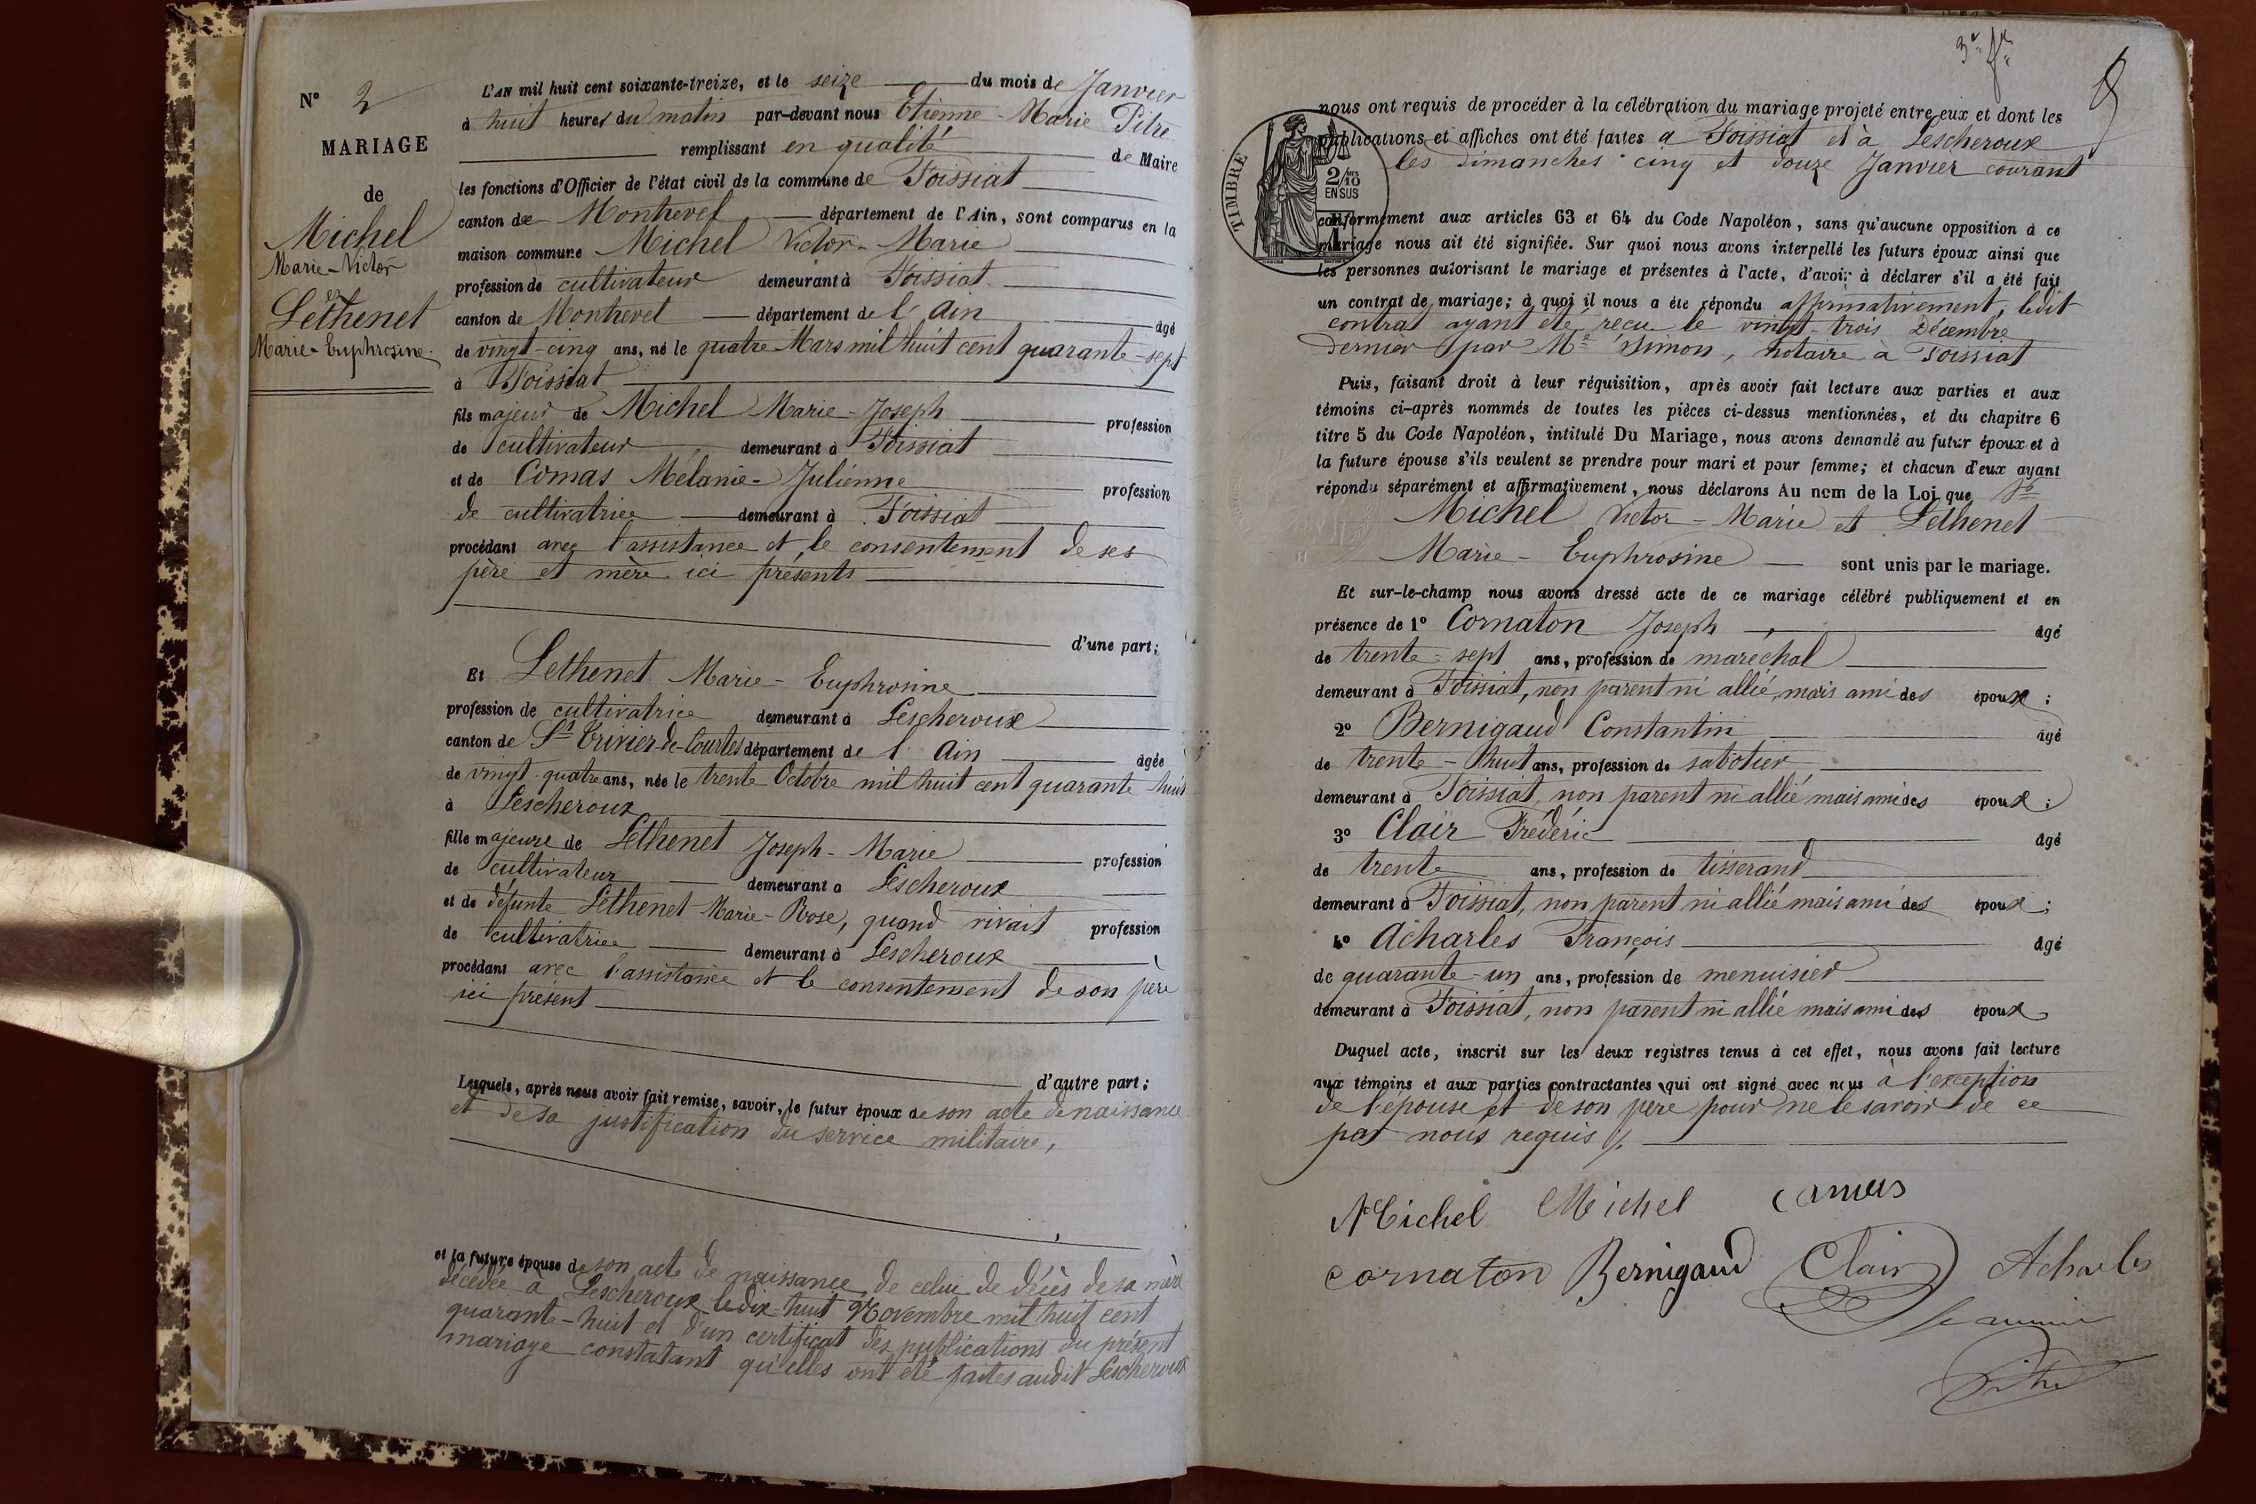 N° 2
MARIAGE
de
Michel
Marie-Victor
et
Léthenet
Marie-Euphrosine.
L'AN mil huit cent soixante-treize, et le seize du mois de Janvier
à huit heures du matin par-devant nous Etienne-Marie Pitre
remplissant en qualité de Maire
les fonctions d'Officier de l'état civil de la commune de Foissiat
canton de Montrevel département de l'Ain, sont comparus en la
maison commune Michel Victor-Marie
profession de cultivateur demeurant à Foissiat
canton de Montrevel département de l'Ain âgé
de vingt-cinq ans, né le quatre Mars mil huit cent quarante-sept
à Foissiat
fils majeur de Michel Marie-Joseph profession
de cultivateur demeurant à Foissiat
et de Comas Mélanie-Julienne profession
de cultivatrice demeurant à Foissiat
procédant avec l'assistance et le consentement de ses
père et mère ici présents
d'une part;
Et Léthenet Marie-Euphrosine
profession de cultivatrice demeurant à Lescheroux
canton de St Trivier-de-Courtes département de l'Ain âgée
de vingt-quatre ans, née le trente Octobre mil huit cent quarante huit
à Lescheroux
fille majeure de Léthenet Joseph-Marie profession
de cultivateur demeurant à Lescheroux
et de défunte Léthenet Marie-Rose, quand vivait profession
de cultivatrice demeurant à Lescheroux
procédant avec l'assistance et le consentement de son père
ici présent
d'autre part;
Lesquels, après nous avoir fait remise, savoir, le futur époux de son acte de naissance
et de sa justification du service militaire,
et la future épouse de son acte de naissance, de celui de décès de sa mère
décédée à Lescheroux le dix-huit Novembre mil huit cent
quarante-huit et d'un certificat des publications du présent
mariage constatant qu'elles ont été faites audit Lescheroux
TIMBRE
2/10
EN SUS
nous ont requis de procéder à la célébration du mariage projeté entre eux et dont les
publications et affiches ont été faites à Foissiat et à Lescheroux
les dimanches cinq et douze Janvier courant
conformément aux articles 63 et 64 du Code Napoléon, sans qu'aucune opposition à ce
mariage nous ait été signifiée. Sur quoi nous avons interpellé les futurs époux ainsi que
les personnes autorisant le mariage et présentes à l'acte, d'avoir à déclarer s'il a été fait
un contrat de mariage; à quoi il nous a été répondu affirmativement, ledit
contrat ayant été reçu le vingt-trois Décembre
dernier par Me Simon, notaire à Foissiat
Puis, faisant droit à leur réquisition, après avoir fait lecture aux parties et aux
témoins ci-après nommés de toutes les pièces ci-dessus mentionnées, et du chapitre 6
titre 5 du Code Napoléon, intitulé Du Mariage, nous avons demandé au futur époux et à
la future épouse s'ils veulent se prendre pour mari et pour femme; et chacun d'eux ayant
répondu séparément et affirmativement, nous déclarons Au nom de la Loi que
Michel Victor-Marie et Léthenet
Marie-Euphrosine sont unis par le mariage.
Et sur-le-champ nous avons dressé acte de ce mariage célébré publiquement et en
présence de 1° Cornaton Joseph âgé
de trente-sept ans, profession de maréchal
demeurant à Foissiat, non parent ni allié, mais ami des époux;
2° Bernigaud Constantin âgé
de trente-huit ans, profession de sabotier
demeurant à Foissiat, non parent ni allié mais ami des époux;
3° Clair Frédéric âgé
de trente ans, profession de tisserand
demeurant à Foissiat, non parent ni allié mais ami des époux;
4° Acharles François âgé
de quarante-un ans, profession de menuisier
demeurant à Foissiat, non parent ni allié mais ami des époux
Duquel acte, inscrit sur les deux registres tenus à cet effet, nous avons fait lecture
aux témoins et aux parties contractantes qui ont signé avec nous à l'exception
de l'épouse et de son père pour ne le savoir de ce
par nous requis
Michel Michel
Cornaton Bernigaud Clair Acharles
Le maire
Pitre